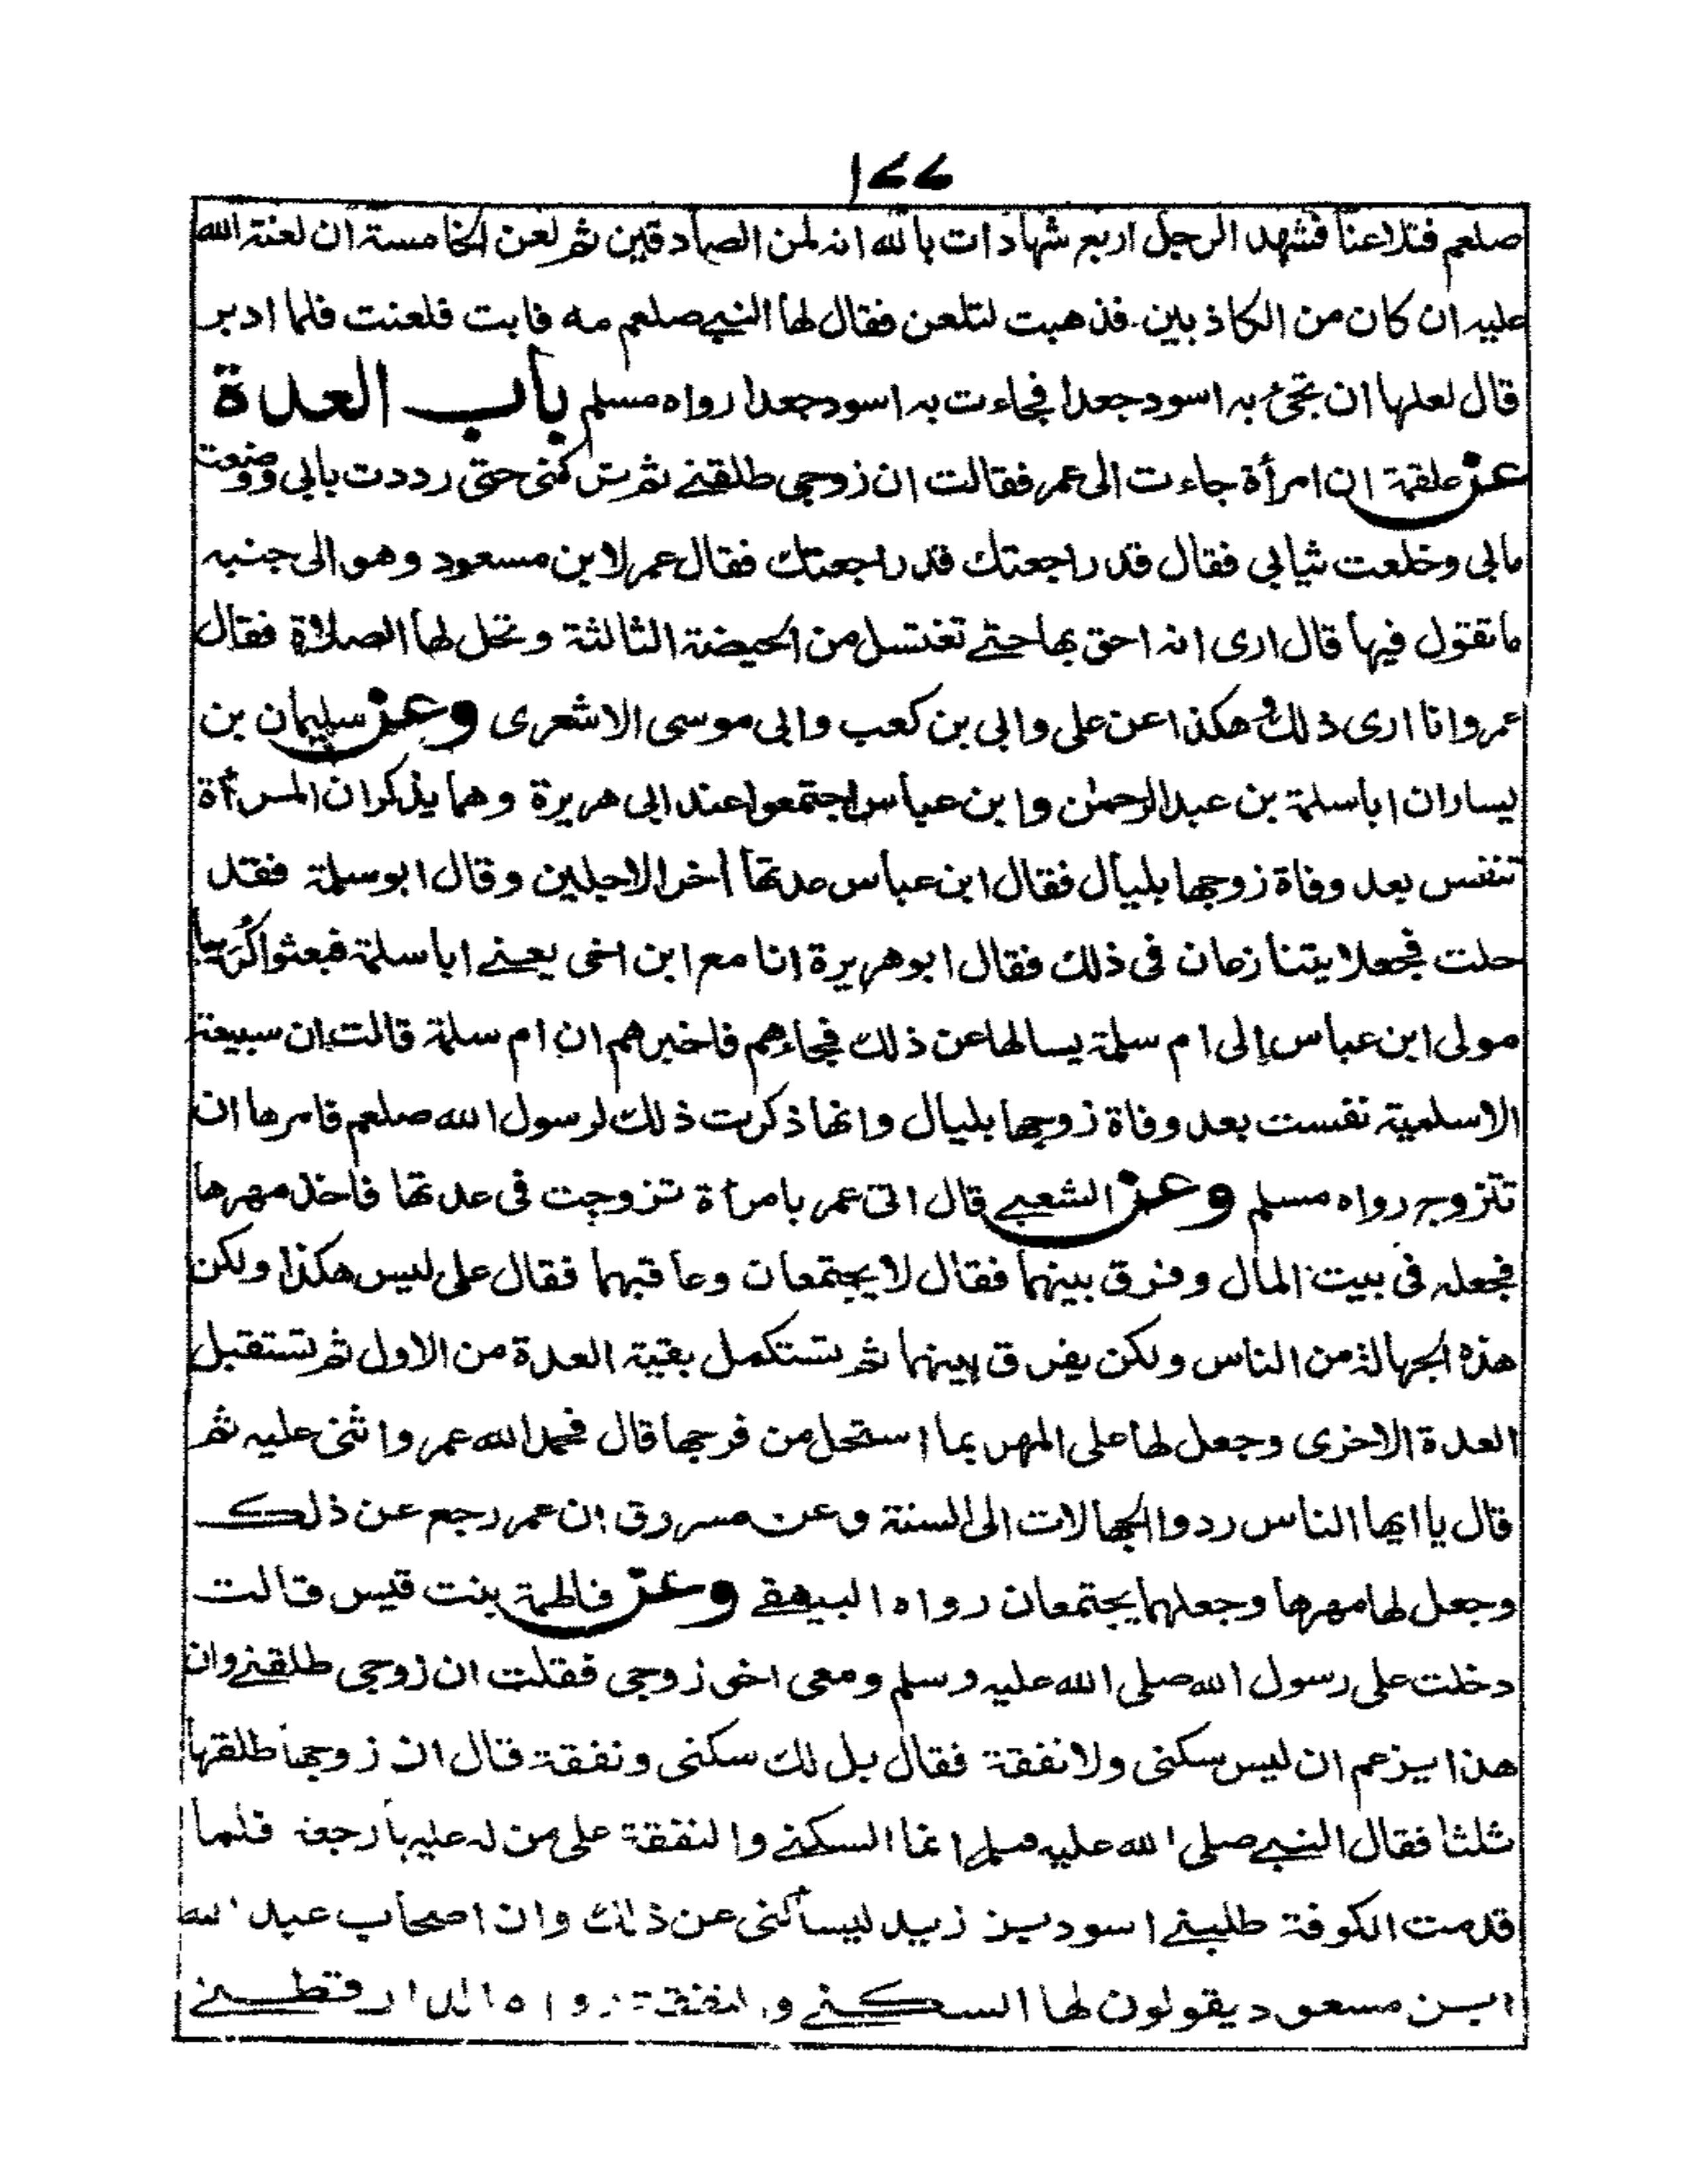 ١٧٧
صلعم فتلاعنا فشهد الرجل اربع شهادات بالله انه لمن الصادقين ثم لعن الخامسة ان لعنة الله
عليه ان كان من الكاذبين فذهبت لتلعن فقال لها النبي صلعم مه فابت فلعنت فلما ادبر
قال لعلها ان تجئ به اسود جعدا فجاءت به اسود جعدا رواه مسلم باب العدة
عن علقمة ان امرأة جاءت الى عمر فقالت ان زوجي طلقني ثم تركني حتى رددت بابي ووضعت
مابي وخلعت ثيابي فقال قد راجعتك قد راجعتك فقال عمر لابن مسعود وهو الى جنبه
ما تقول فيها قال ارى انه احق بها حتى تغتسل من الحيضة الثالثة وتحل لها الصلاة فقال
عمر وانا ارى ذلك وهكذا عن على وابي بن كعب وابي موسى الاشعرى وعن سليمان بن
يسار ان اباسلمة بن عبد الرحمن وابن عباس اجتمعوا عند ابى هريرة وهما يذكران المرأة
تنفس بعد وفاة زوجها بليال فقال ابن عباس عدتها أخر الاجلين وقال ابوسلمة فقد
حلت فجعلا يتنازعان فى ذلك فقال ابوهريرة انا مع ابن اخى يعني اباسلمة فبعثوا كُرَيبا
مولى ابن عباس إلى ام سلمة يسالها عن ذلك فجاءهم فاخبرهم ان ام سلمة قالت ان سبيعة
الاسلمية نفست بعد وفاة زوجها بليال وانها ذكرت ذلك لرسول الله صلعم فامرها ان
تتزوج رواه مسلم وعن الشعبي قال اتى عمر بامرأة تزوجت فى عدتها فاخذ مهرها
فجعله فى بيت المال وفرق بينهما فقال لا يجتمعان وعاقبهما فقال على ليس هكذا ولكن
هذه الجهالة من الناس ولكن يفرق بينهما ثم تستكمل بقية العدة من الاول ثم تستقبل
العدة الاخرى وجعل لها على المهر بما استحل من فرجها قال فحمد الله عمر واثنى عليه ثم
قال يا ايها الناس ردوا الجهالات الى السنة وعن مسروق ان عمر رجع عن ذلك
وجعل لها مهرها وجعلهما يجتمعان رواه البيهقي وعن فاطمة بنت قيس قالت
دخلت على رسول الله صلى الله عليه وسلم ومعى اخى زوجى فقلت ان زوجى طلقني وان
هذا يزعم ان ليس سكنى ولا نفقة فقال بل لك سكنى ونفقة قال ان زوجها طلقها
ثلثا فقال النبي صلى الله عليه وسلم انما السكنى والنفقة على من له عليها رجعة فلما
قدمت الكوفة طلبني اسود بن زيد ليسألنى عن ذلك وان اصحاب عبد الله
ابن مسعود يقولون لها السكنى والنفقة رواه الدارقطني